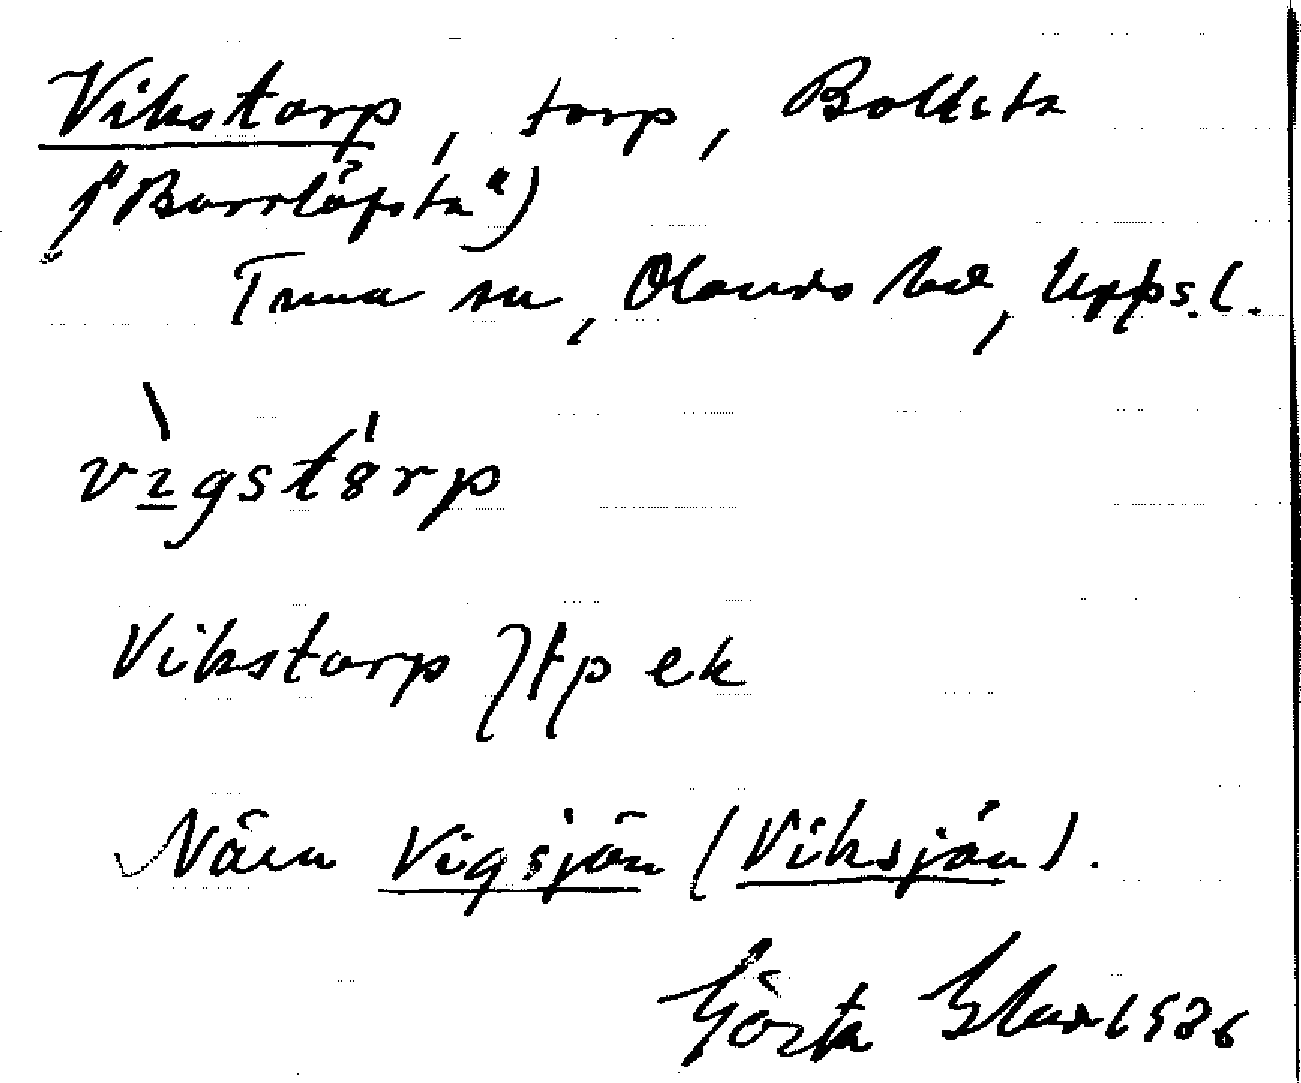 Vikstorp, torp, Bollsta
("Borrlöfsta")
Tuna sn, Olands hd, Upps. l.
vìgstórp
Vikstorp } tp ek
Nära Vigsjön (Viksjön).
Gösta 1936